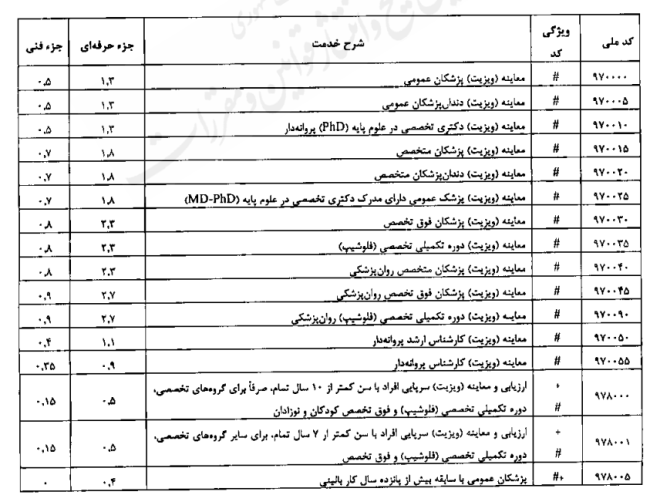 کد ملی ویژگی کد شرح خدمت جزء حرفه‌ای جزء فنی
۹۷۰۰۰۰ # معاینه (ویزیت) پزشکان عمومی ۱,۳ ۰,۵
۹۷۰۰۰۵ # معاینه (ویزیت) دندان‌پزشکان عمومی ۱,۳ ۰,۵
۹۷۰۰۱۰ # معاینه (ویزیت) دکتری تخصصی در علوم پایه (PhD) پروانه‌دار ۱,۳ ۰,۵
۹۷۰۰۱۵ # معاینه (ویزیت) پزشکان متخصص ۱,۸ ۰,۷
۹۷۰۰۲۰ # معاینه (ویزیت) دندان‌پزشکان متخصص ۱,۸ ۰,۷
۹۷۰۰۲۵ # معاینه (ویزیت) پزشک عمومی دارای مدرک دکتری تخصصی در علوم پایه (MD-PhD) ۱,۸ ۰,۷
۹۷۰۰۳۰ # معاینه (ویزیت) پزشکان فوق تخصص ۲,۳ ۰,۸
۹۷۰۰۳۵ # معاینه (ویزیت) دوره تکمیلی تخصصی (فلوشیپ) ۲,۳ ۰,۸
۹۷۰۰۴۰ # معاینه (ویزیت) پزشکان متخصص روان‌پزشکی ۲,۳ ۰,۸
۹۷۰۰۴۵ # معاینه (ویزیت) پزشکان فوق تخصص روان‌پزشکی ۲,۷ ۰,۹
۹۷۰۰۹۰ # معاینه (ویزیت) دوره تکمیلی تخصصی (فلوشیپ) روان‌پزشکی ۲,۷ ۰,۹
۹۷۰۰۵۰ # معاینه (ویزیت) کارشناس ارشد پروانه‌دار ۱,۱ ۰,۴
۹۷۰۰۵۵ # معاینه (ویزیت) کارشناس پروانه‌دار ۰,۹ ۰,۳۵
۹۷۸۰۰۰ + ارزیابی و معاینه (ویزیت) سرپایی افراد با سن کمتر از ۱۰ سال تمام، صرفاً برای گروه‌های تخصصی، ۰,۵ ۰,۱۵
# دوره تکمیلی تخصصی (فلوشیپ) و فوق تخصص کودکان و نوزادان
۹۷۸۰۰۱ + ارزیابی و معاینه (ویزیت) سرپایی افراد با سن کمتر از ۷ سال تمام، برای سایر گروه‌های تخصصی، ۰,۵ ۰,۱۵
# دوره تکمیلی تخصصی (فلوشیپ) و فوق تخصص
۹۷۸۰۰۵ #+ پزشکان عمومی با سابقه بیش از پانزده سال کار بالینی ۰,۴ ۰